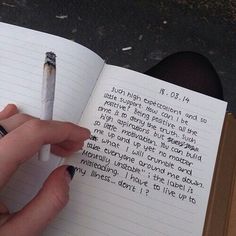 18.03.14
Such high expectations and so
little support. How can I be
positive? Being positive all the
time is to deny the truth. Such
high aspirations but
so little motivation. You can build
me up and up yet no matter
what I will crumble and
take everyone around me down.
"Mentally unstable": the label is
misleading. I have to live up to
my illness... don't I?